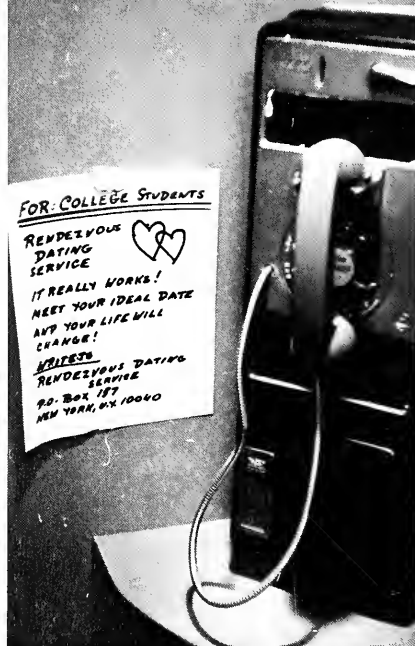 FOR: COLLEGE STUDENTS
RENDEZVOUS
DATING
SERVICE
IT REALLY WORKS!
MEET YOUR IDEAL DATE
AND YOUR LIFE WILL
CHANGE!
WRITE TO
RENDEZVOUS DATING
SERVICE
P.O. BOX 157
NEW YORK, N.Y. 10040